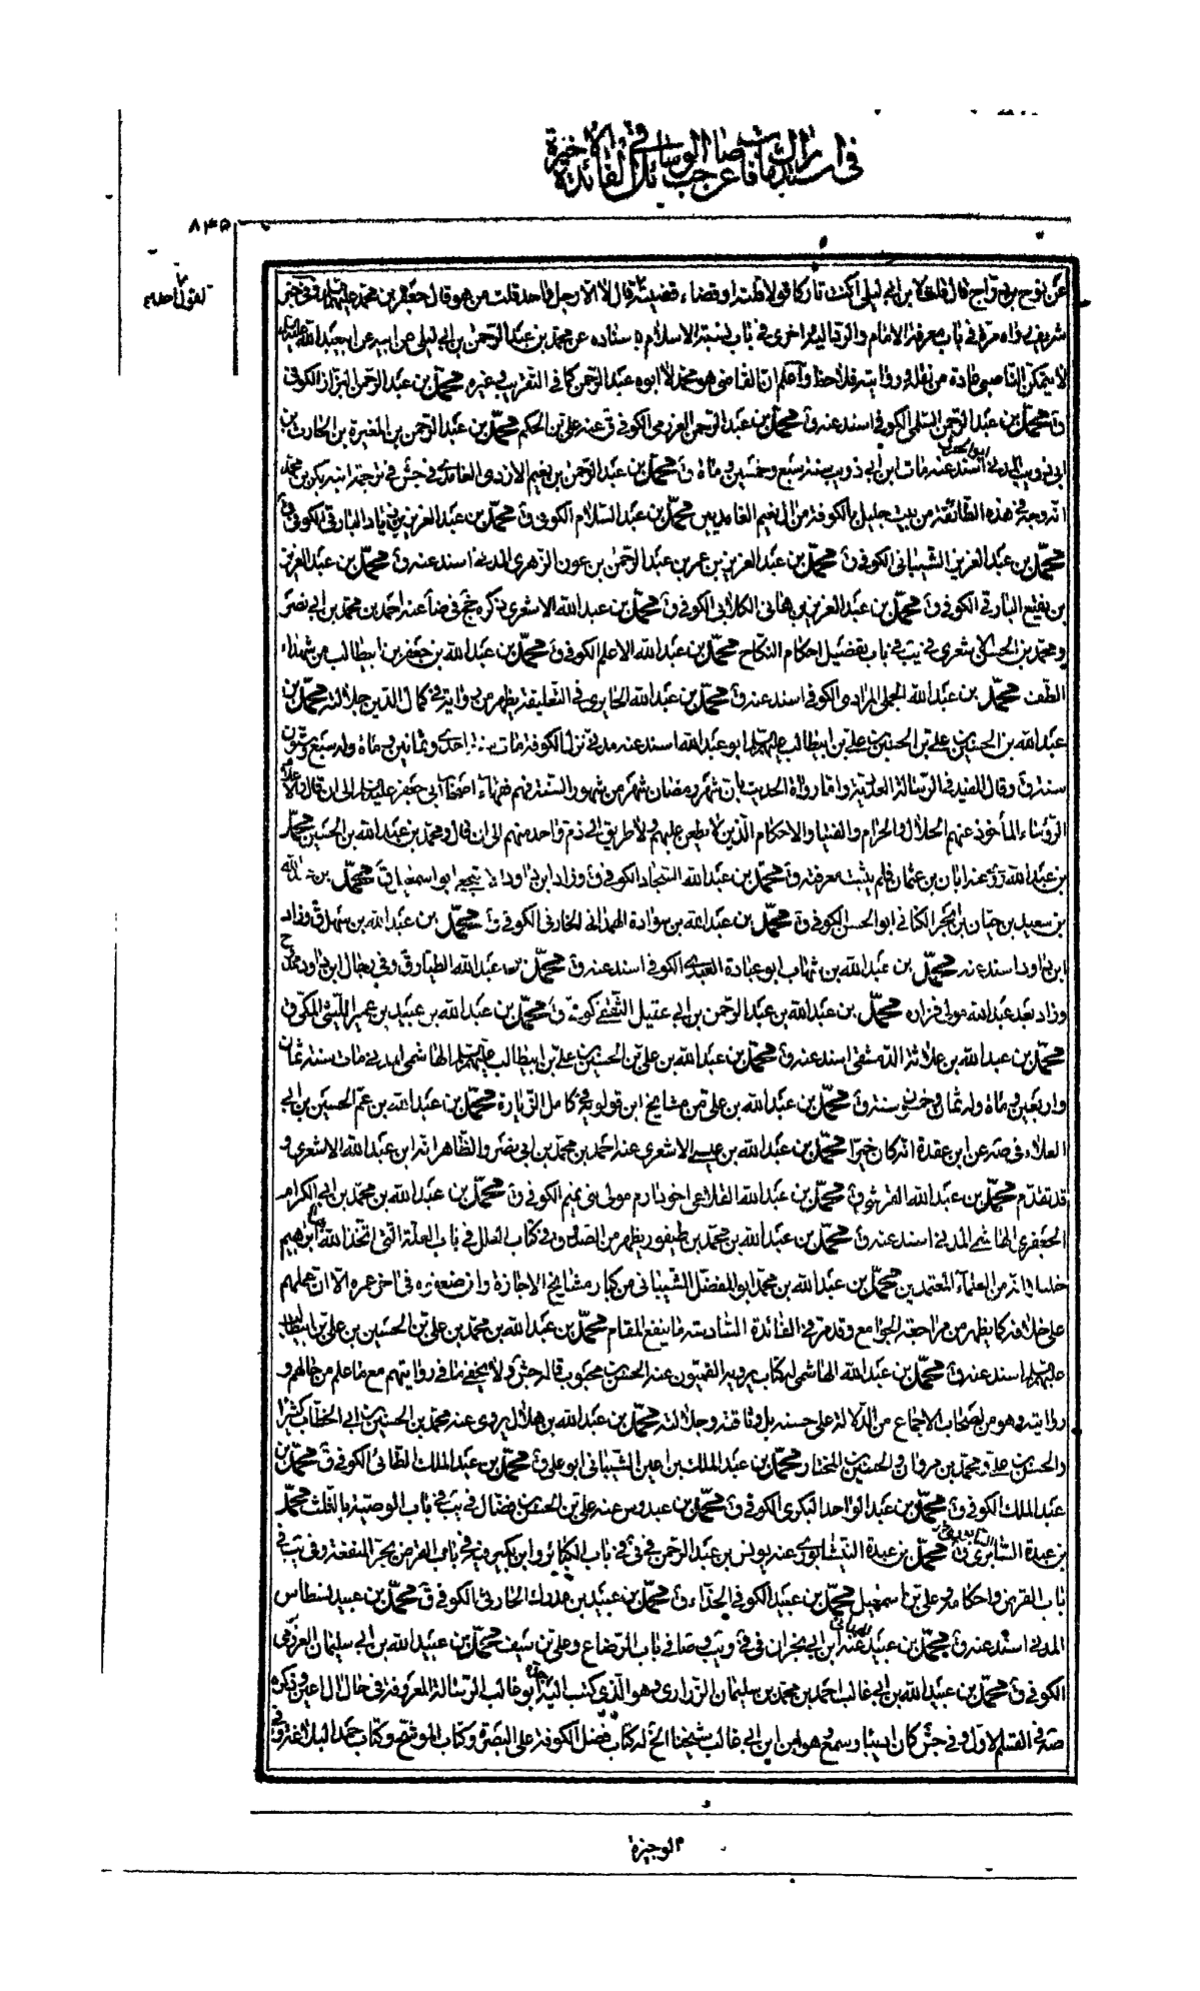 في استدراك ما فات عن صاحب الوسائل في الفائدة الأخيرة
٨٣٥
عن نوح بن دراج قال قلت لابن ابي ليلى اكنت تاركا قولا قلته او قضاء قضيته قال لا الا رجل واحد قلت من هو قال جعفر بن محمد
لا يتمكن القاضي عادة من نقله وروايته فلاحظ واعلم ان القاضي هو محمد لا ابوه عبد الرحمن كما في التقريب وغيره محمد بن عبد الرحمن البزاز الكوفي
ق محمد بن عبد الرحمن السلمي الكوفي اسند عنه ق محمد بن عبد الرحمن العرزمي الكوفي ق عنه علي بن الحكم محمد بن عبد الرحمن بن المغيرة بن الحارث بن
ابي ذويب المدني اسند عنه مات ابن ابي ذويب سنة سبع وخمسين وماة ق محمد بن عبد الرحمن بن نعيم الازدي الغامدي في جش في ترجمة ابنه بكر بن محمد
انه وجه في هذه الطائفة من بيت جليل بالكوفة من ال نعيم الغامديين محمد بن عبد السلام الكوفي ق محمد بن عبد العزيز بن زياد البارقي الكوفي ق
محمد بن عبد العزيز الشيباني الكوفي ق محمد بن عبد العزيز بن عمر بن عبد الرحمن بن عون الزهري المدني اسند عنه ق محمد بن عبد العزيز
بن يفتع البارقي الكوفي ق محمد بن عبد العزيز بن هاني الكلابي الكوفي ق محمد بن عبد الله الاشعري ذكره جخ في ضا عنه احمد بن محمد بن ابي نصر
ومحمد بن الحسن الاشعري في يب في باب تفصيل احكام النكاح محمد بن عبد الله الاعلم الكوفي ق محمد بن عبد الله بن جعفر بن ابيطالب من شهداء
الطف محمد بن عبد الله الجملي المرادي الكوفي اسند عنه ق محمد بن عبد الله الحايري في التعليقة يظهر من رواية في كمال الدين جلالته محمد بن
عبد الله بن الحسين بن علي بن الحسين بن علي بن ابيطالب ابو عبد الله اسند عنه مدني نزل الكوفة مات احدى وثمانين وماة وله سبع وستون
سنة ق وقال المفيد في الرسالة العددية واما رواة الحديث بان شهر رمضان شهر من شهور السنة فهم فقهاء اصحاب ابي جعفر الى ان قال والاعلام
الرؤساء المأخوذ عنهم الحلال والحرام والفتيا والاحكام الذين لا يطعن عليهم ولا طريق الى ذم واحد منهم الى ان قال ومحمد بن عبد الله بن الحسين محمد
بن عبد الله روى عنه ابان بن عثمان فلم يثبت معرفته ق محمد بن عبد الله السجاد الكوفي ق وزاد ابن داود ابو اسمعيل ق محمد بن عبد الله
بن سعيد بن حيان بن ابجر الكناني ابو الحسن الكوفي ق محمد بن عبد الله بن سوادة الهمداني الخارفي الكوفي ق محمد بن عبد الله بن سهل ق وزاد
ابن داود اسند عنه محمد بن عبد الله بن شهاب ابو عبادة العبدي الكوفي اسند عنه ق محمد بن عبد الله الطيار ق وفي رجال ابن داود محمد
وزاد بعد عبد الله مولى فزاره محمد بن عبد الله بن عبد الرحمن بن ابي عقيل الثقفي كوفي ق محمد بن عبد الله بن عبيد بن عمير الليثي المكي ق
محمد بن عبد الله بن علاثة الدمشقي اسند عنه ق محمد بن عبد الله بن علي بن الحسين بن علي بن ابيطالب الهاشمي المدني مات سنة ثمان
واربعين وماة وله ثمان وخمسون سنة ق محمد بن عبد الله بن علي من مشايخ ابن قولويه في كامل الزيارة محمد بن عبد الله بن عم الحسين بن ابي
العلاء في صه عن ابن عقدة انه كان خيرا محمد بن عبد الله بن عيسى الاشعري عنه احمد بن محمد بن ابي نصر والظاهر انه ابن عبد الله الاشعري و
قد تقدم محمد بن عبد الله القرشي ق محمد بن عبد الله القلاعي اخو نادم مولى بني تميم الكوفي ق محمد بن عبد الله بن محمد بن ابي الكرام
الجعفري الهاشمي المدني اسند عنه ق محمد بن عبد الله بن محمد بن طيفور يظهر من الصدوق في كتاب العلل في باب العلة التي اتخذ الله ابرهيم
خليلا انه من العلماء المعتمدين محمد بن عبد الله بن محمد ابو المفضل الشيباني من كبار مشايخ الاجازة وان ضعفوه في اخر عمره الا ان عملهم
على خلافه كما يظهر من مراجعة الجوامع وقد مر في الفائدة السادسة ما ينفع المقام محمد بن عبد الله بن محمد بن علي بن الحسين بن علي بن ابيطالب
اسند عنه ق محمد بن عبد الله الهاشمي له كتاب يرويه القميون عنه الحسن بن محبوب قاله جش ولا يخفى ما في روايتهم مع ما علم من حالهم و
روايته وهو من اصحاب الاجماع من الدلالة على حسنه بل وثاقته وجلالته محمد بن عبد الله بن هلال يروي عنه محمد بن الحسين بن ابي الخطاب كثيرا
والحسن بن علي ومحمد بن مروان والحسين بن المختار محمد بن عبد الملك بن اعين الشيباني ابو علي ق محمد بن عبد الملك الطائي الكوفي ق محمد بن
عبد الملك الكوفي ق محمد بن عبد الواحد البكري الكوفي ق محمد بن عبدوس عنه علي بن الحسن بن فضال في يب في باب الوصية بالثلث محمد
بن عبدة السابري ق محمد بن عبدة النيشابوري عنه يونس بن عبد الرحمن في في باب الكبائر وابن بكير فيه في باب القرض يجر المنفعة وفي يب في
باب القرض واحكامه وعلي بن اسمعيل محمد بن عبيد الكوفي الحذاء ق محمد بن عبيد بن مدرك الحارثي الكوفي ق محمد بن عبيد بسطاس
المدني اسند عنه ق محمد بن عبيد عنه ابن ابي نجران في في ويب وصا في باب الرضاع وعلي بن سيف محمد بن عبيد الله بن ابي سليمان العرزمي
الكوفي ق محمد بن عبيد الله بن ابي غالب احمد بن محمد بن سليمان الزراري وهو الذي كتب اليه جده ابو غالب الرسالة المعروفة في حال ال اعين وذكره
صه في القسم الاول وفي جش كان اديبا وسمع وهو ابن ابن ابي غالب شيخنا الخ له كتاب فضل الكوفة على البصرة وكتاب الموشح وكتاب جمل البلاغة ق في
الوجيزة